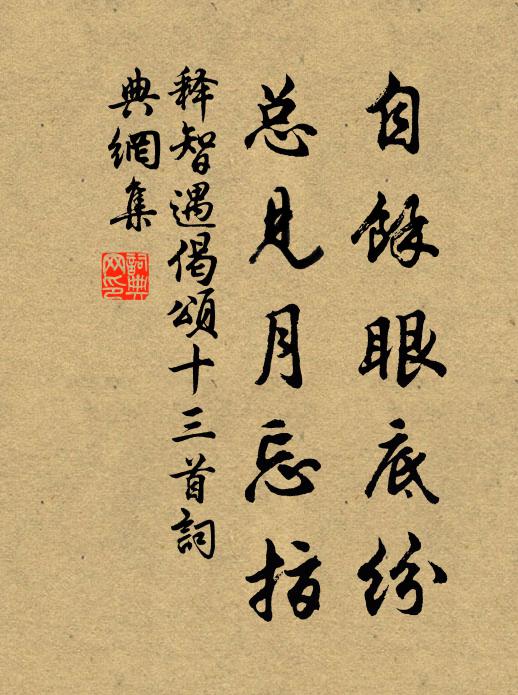 自餘眼底紛
总見月忘指
释智遇偈頌十三首詞
典網集
詞典
网印